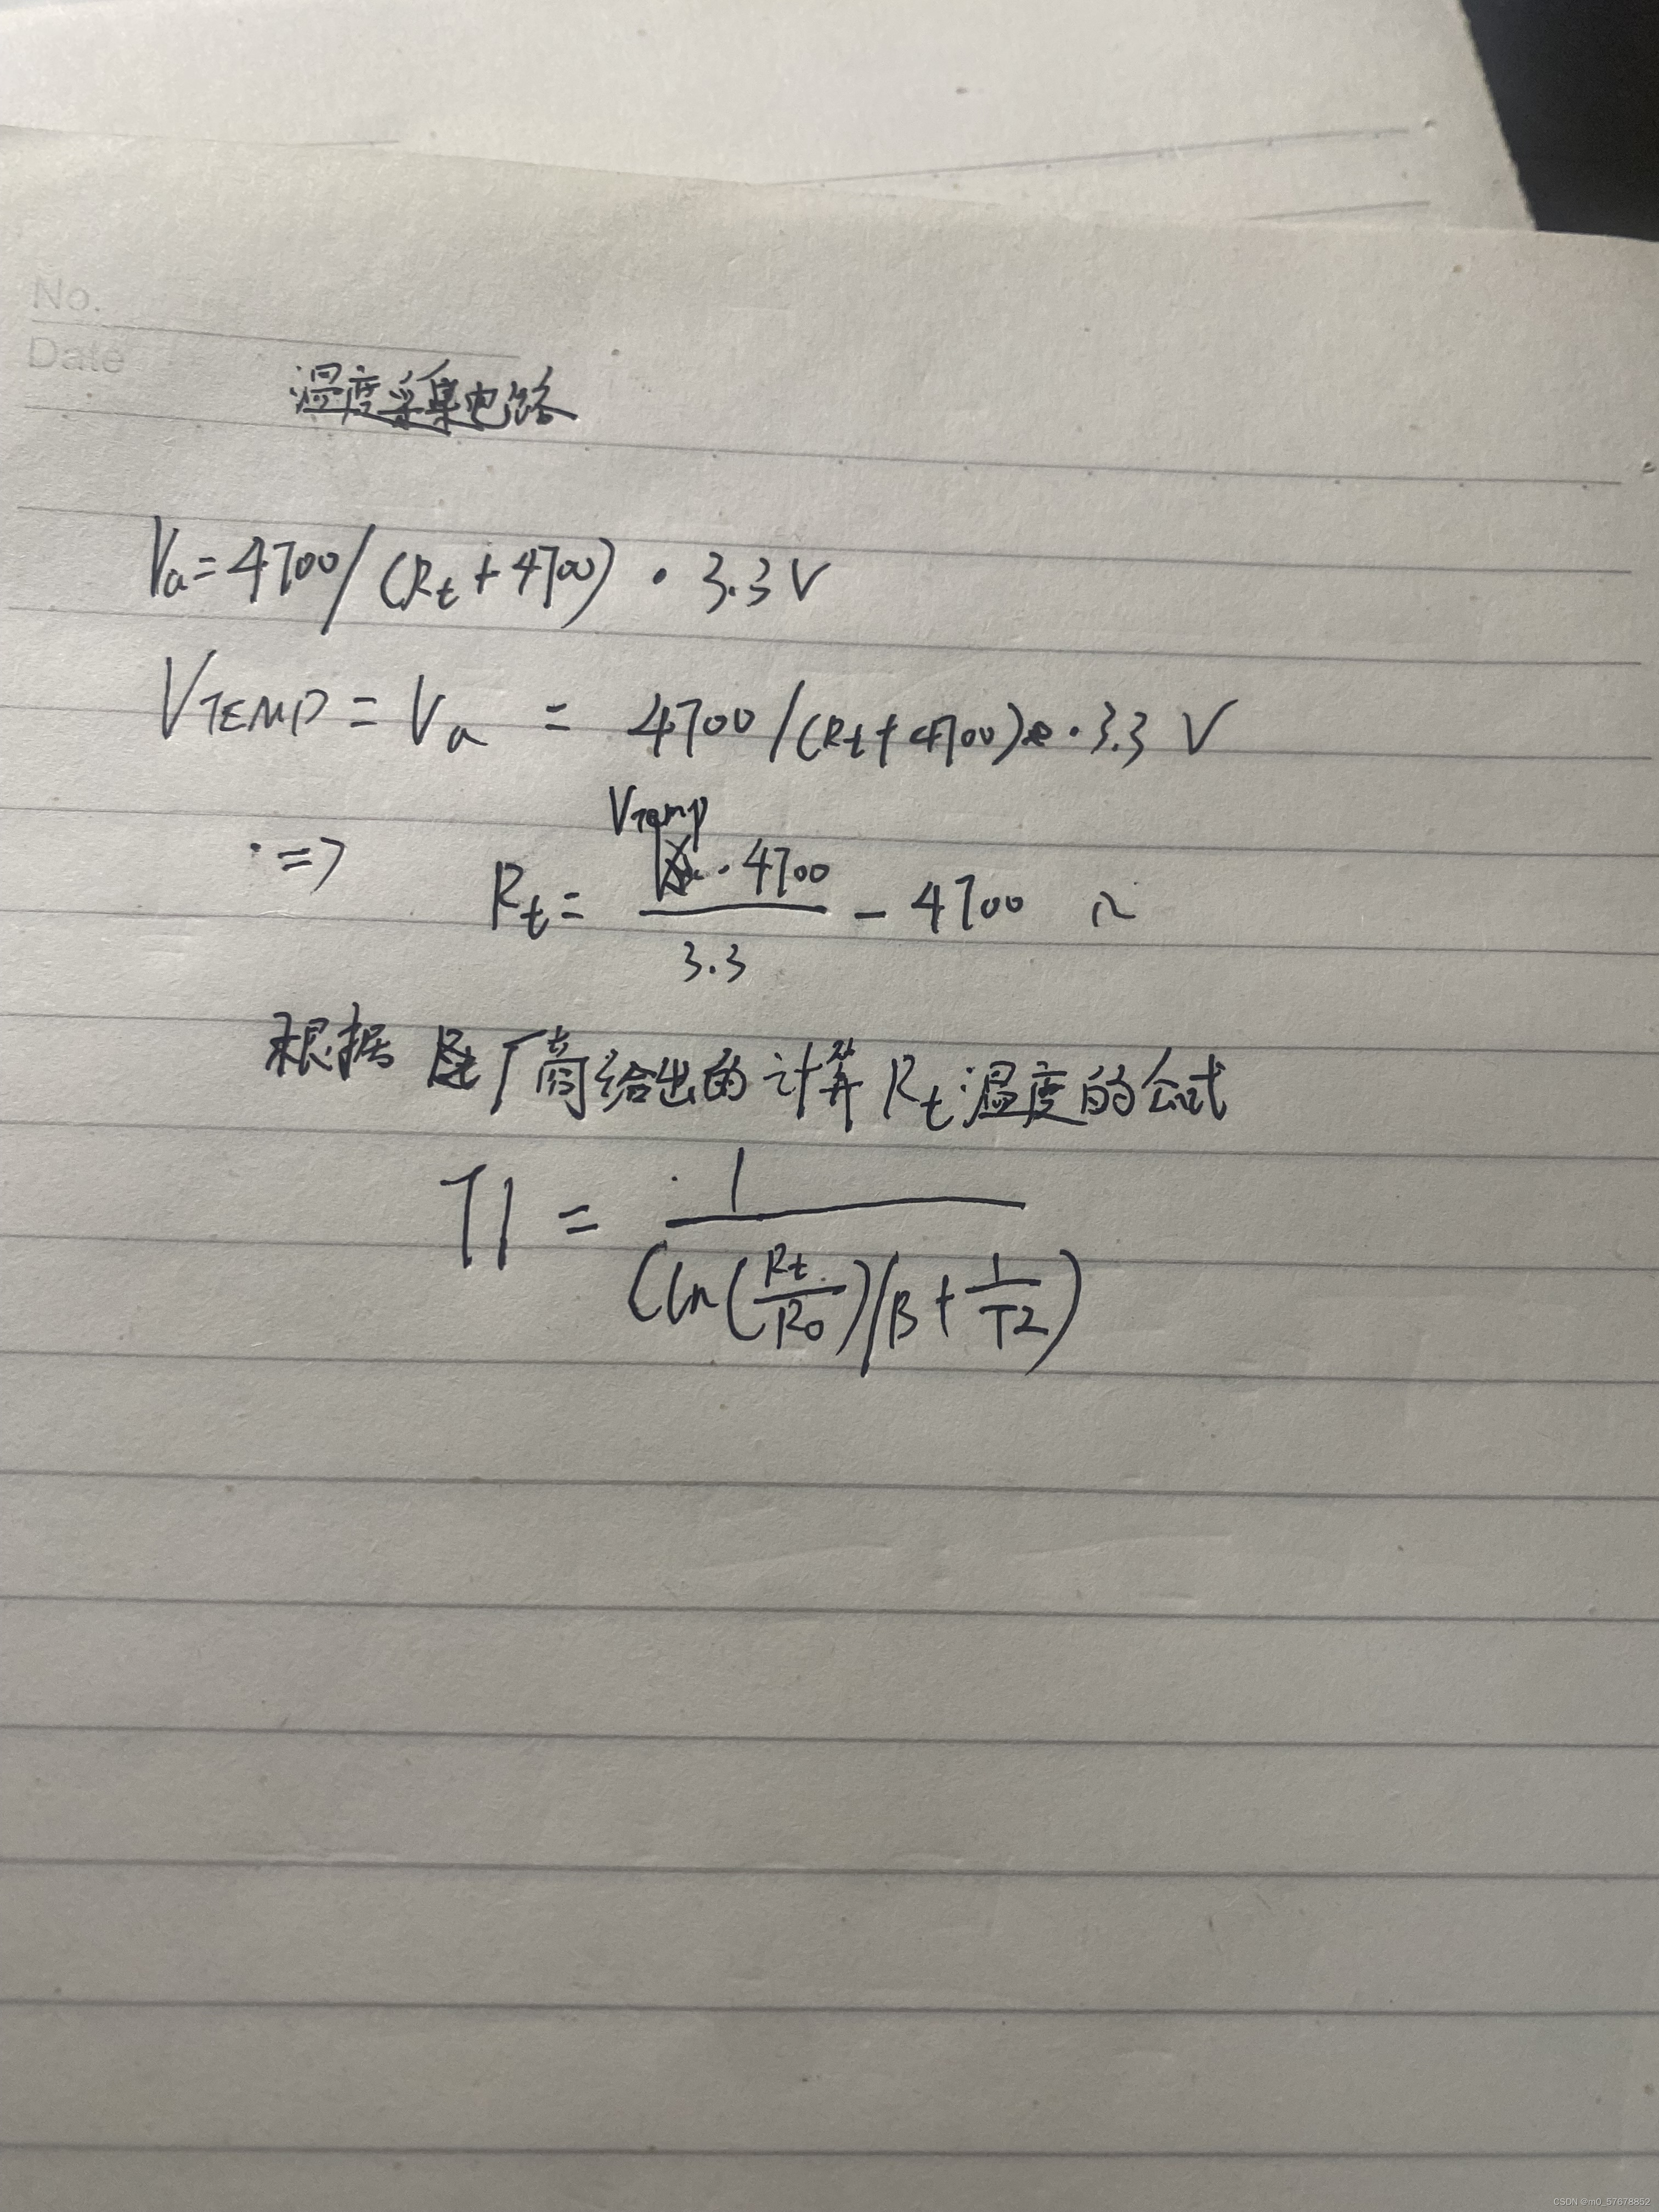 No.
Date
温度采集电路
Va = 4700/(Rt+4700) · 3.3V
VTEMP = Va = 4700/(Rt+4700) · 3.3 V
=> Rt = VTemp · 4700 / 3.3 - 4700 Ω
根据 厂商给出的计算Rt温度的公式
T1 = 1 / (ln(Rt/R0)/B + 1/T2)
CSDN @m0_57678852